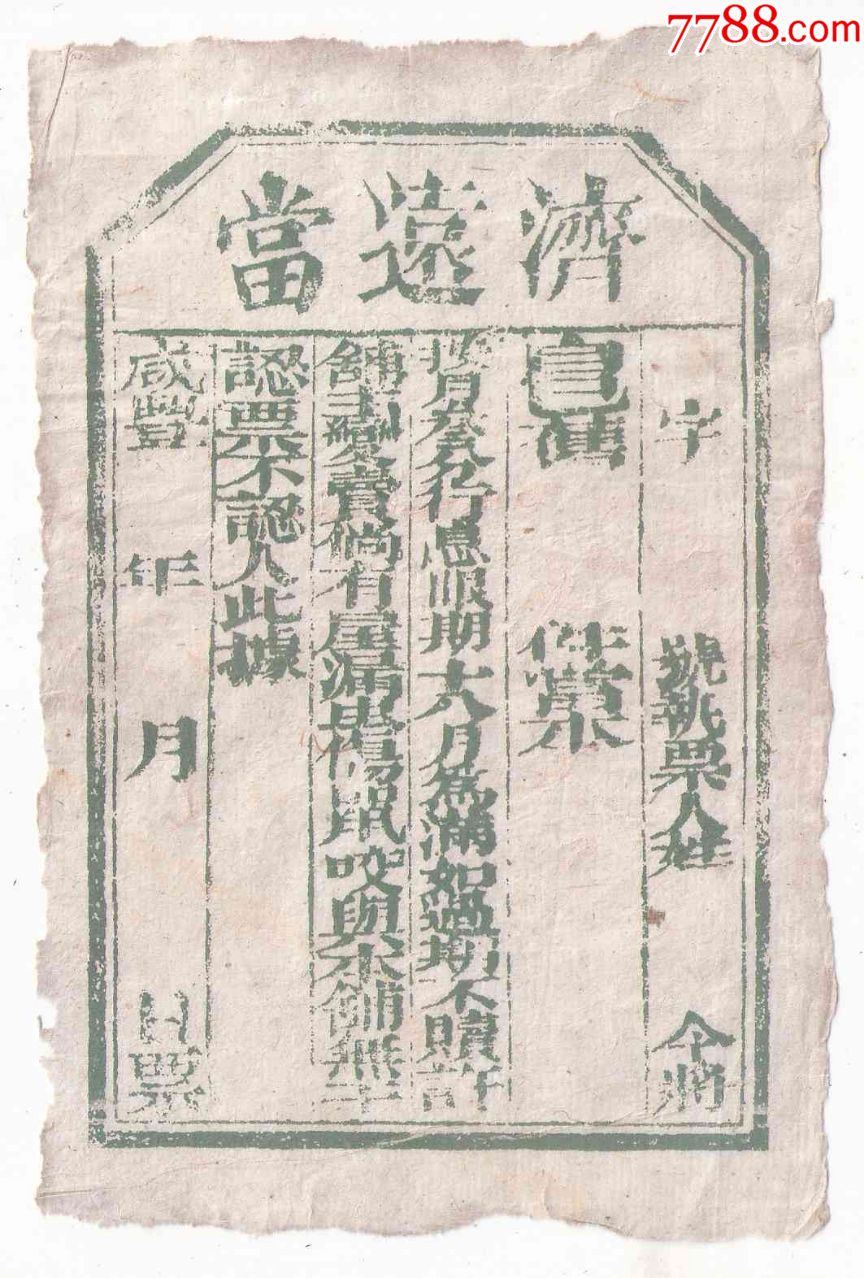 7788.com
濟遠當
字 號執票人姓 今將
自舊 件當本
按月叁分行息限期十八月為滿如過期不贖許
舖主變賣倘有屋漏蟲傷鼠咬與本舖無干
認票不認人此據
咸豐 年 月 日票